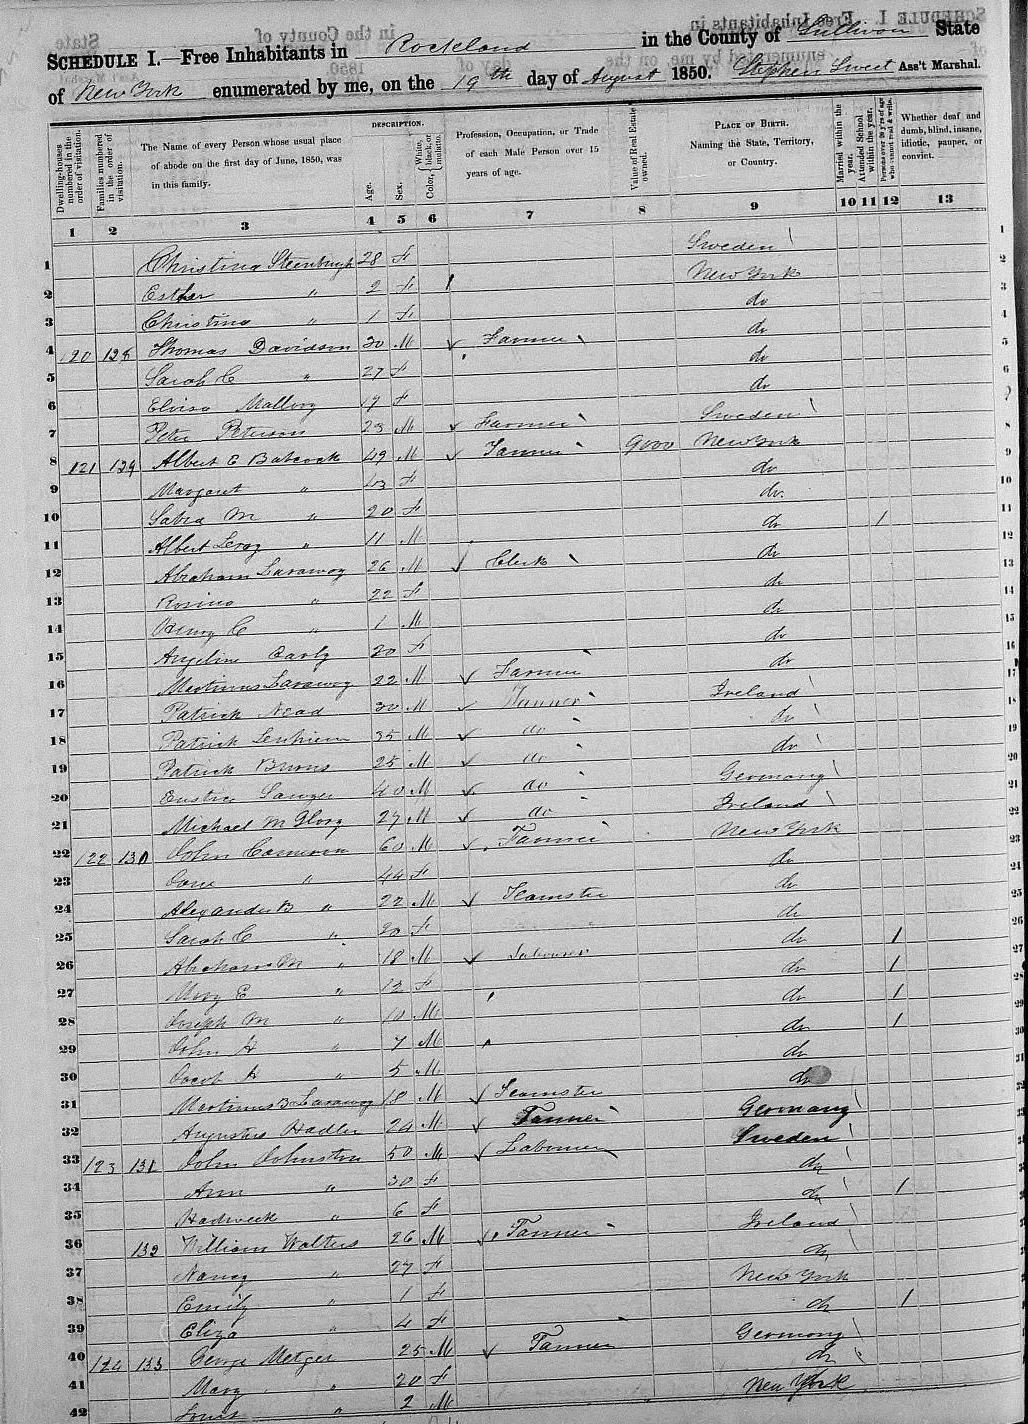 SCHEDULE I.—Free Inhabitants in Rockland in the County of Sullivan State
of New York enumerated by me, on the 19th day of August 1850. Stephen Sweet Ass't Marshal.
Dwelling-houses numbered in the order of visitation.
Families numbered in the order of visitation.
The Name of every Person whose usual place of abode on the first day of June, 1850, was in this family.
DESCRIPTION.
Age.
Sex.
Color, { White, black, or mulatto.
Profession, Occupation, or Trade of each Male Person over 15 years of age.
Value of Real Estate owned.
PLACE OF BIRTH. Naming the State, Territory, or Country.
Married within the year.
Attended School within the year.
Persons over 20 y'rs of age who cannot read & write.
Whether deaf and dumb, blind, insane, idiotic, pauper, or convict.
1 2 3 4 5 6 7 8 9 10 11 12 13
1 Christina Steenburgh 28 F Sweden 1
2 Esther " 2 F New York 2
3 Christina " 1 F do 3
4 120 128 Thomas Davidson 30 M Farmer do 4
5 Sarah C " 27 F do 5
6 Elvisa Mallory 19 F do 6
7 Peter Peterson 23 M Farmer Sweden
8 121 129 Albert E Babcock 49 M Tanner 9000 New York 8
9 Margaret " 43 F do 9
10 Sabra M " 20 F do 10
11 Albert Leroy " 11 M do 1 11
12 Abraham Laraway 26 M Clerk do 12
13 Rosina " 22 F do 13
14 Henry C " 1 M do 14
15 Angeline Early 20 F do 15
16 Martinus Laraway 22 M Farmer do 16
17 Patrick Nead 30 M Tanner Ireland 17
18 Patrick 35 M do do 18
19 Patrick Burns 25 M do do 19
20 Sawyer 40 M do Germany 20
21 Michael McGlory 27 M do Ireland 21
22 122 130 John Cameron 60 M Farmer New York 22
23 Jane " 44 F do 23
24 Alexander B " 22 M Teamster do 24
25 Sarah C " 20 F do 25
26 Abraham M " 18 M Labourer do 1 26
27 Mary E " 12 F do 1 27
28 Joseph M " 10 M do 1 28
29 John H " 7 M do 1 29
30 Jacob " 5 M do 30
31 Martinus B Laraway 18 M Teamster do 31
32 Augustus Hadler 24 M Tanner Germany
33 123 131 John Johnston 50 M Labourer Sweden
34 Ann " 30 F do
35 " 6 F do 1
36 132 William Walters 26 M Tanner Ireland
37 Nancy " 27 F do
38 Emily " 1 F New York
39 Eliza " 4 F do 1
40 124 133 George Metger 25 M Tanner Germany
41 Mary " 20 F do
42 Louis " 2 M New York